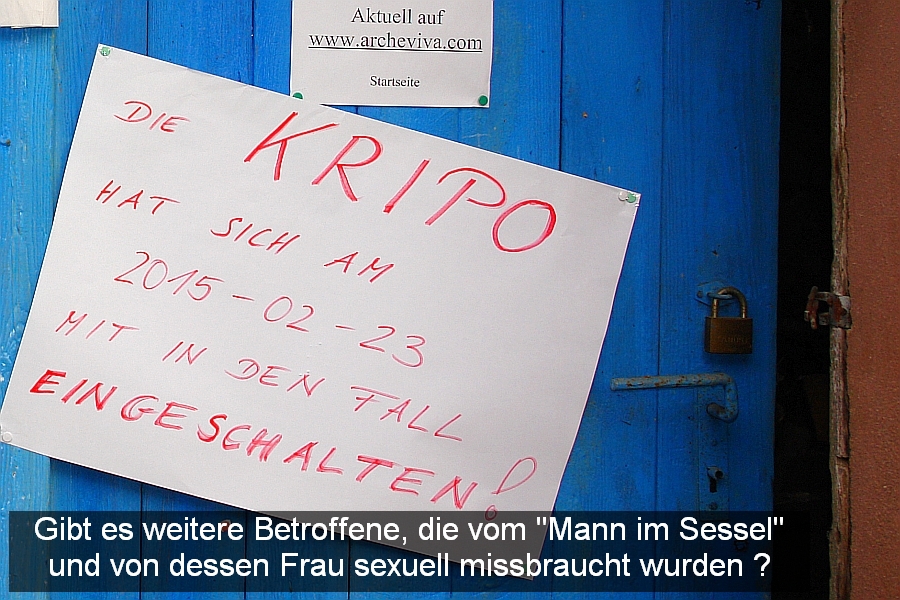 Aktuell auf
www.archeviva.com
Startseite
DIE KRIPO
HAT SICH AM
2015-02-23
MIT IN DEN FALL
EINGESCHALTEN!
Gibt es weitere Betroffene, die vom "Mann im Sessel"
und von dessen Frau sexuell missbraucht wurden ?